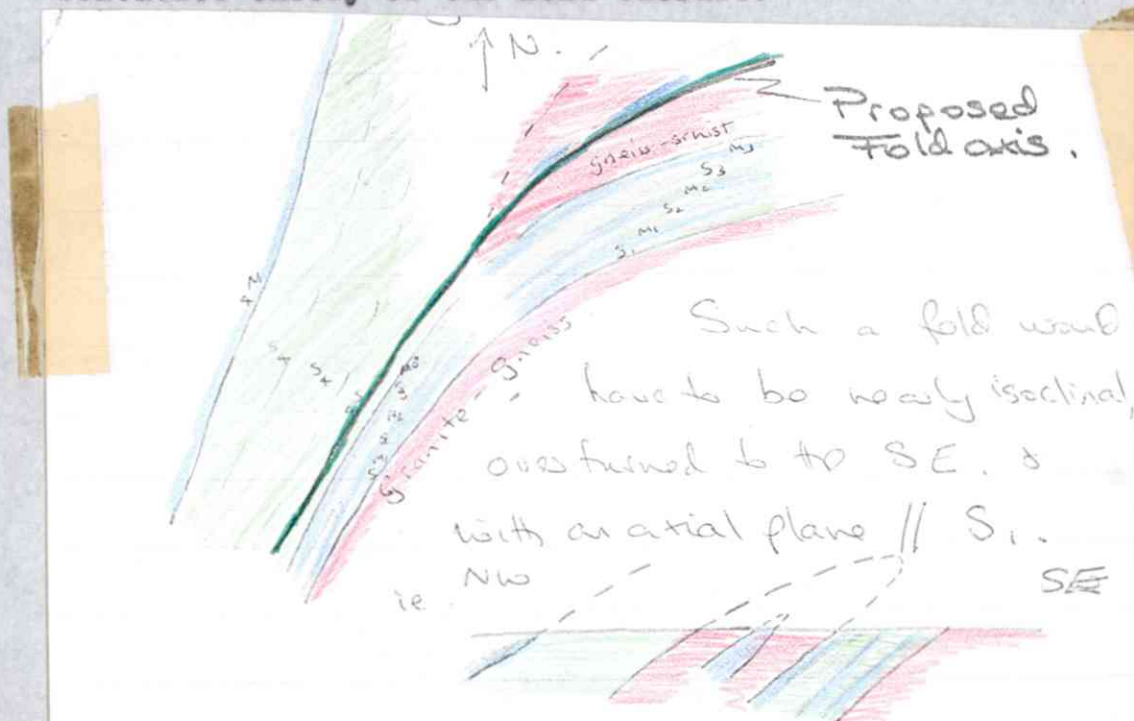 ↑ N.
Proposed
Fold axis.
gneiss-schist
M3
S3
M2
S2
M1
S1
granite-gneiss
Such a fold would
have to be nearly isoclinal,
overturned to the SE. &
with an axial plane // S1.
ie. NW
SE